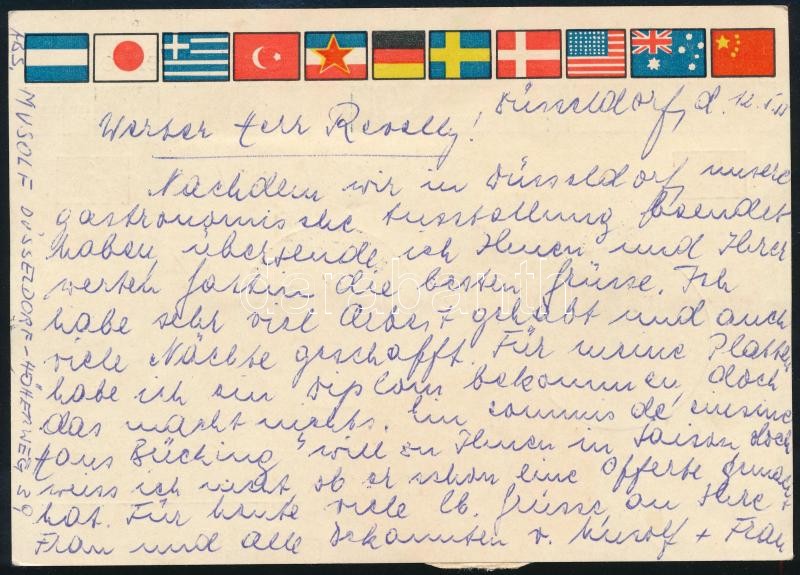 Düsseldorf, d. 12.
Werter Herr Revelly!
Nachdem wir in Düsseldorf unsere
gastronomische Ausstellung beendet
haben, übersende ich Ihnen und Ihrer
werten Gattin die besten Grüsse. Ich
habe sehr viel Arbeit gehabt und auch
viele Nächte geschafft. Für meine Platten
habe ich ein Diplom bekommen, doch
das macht nichts. Ein commis de cuisine
"Hans Büching" will zu Ihnen in Saison doch
weiss ich nicht, ob er schon eine Offerte gemacht
hat. Für heute viele lb. Grüsse an Ihre
Frau und alle Bekannten v. Musolf + Frau
ABS. MUSOLF DÜSSELDORF-HÖHERWEG 39
darabanth